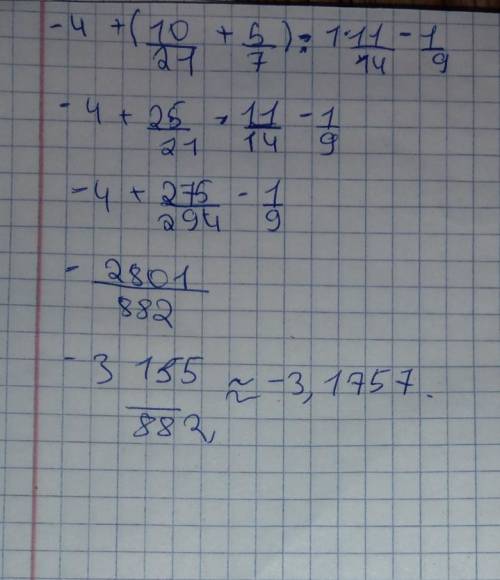 -4 + (10/21 + 5/7) : 1·11/14 - 1/9
-4 + 25/21 · 11/14 - 1/9
-4 + 275/294 - 1/9
- 2801/882
-3 155/882 ≈ -3,1757.